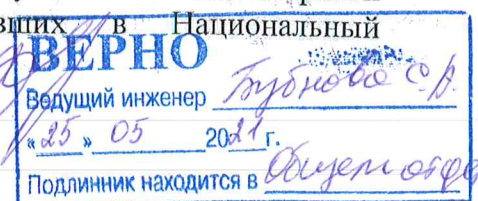 в Национальный
ВЕРНО
Ведущий инженер Бубнова С.А.
«25» 05 2021 г.
Подлинник находится в Общем отде